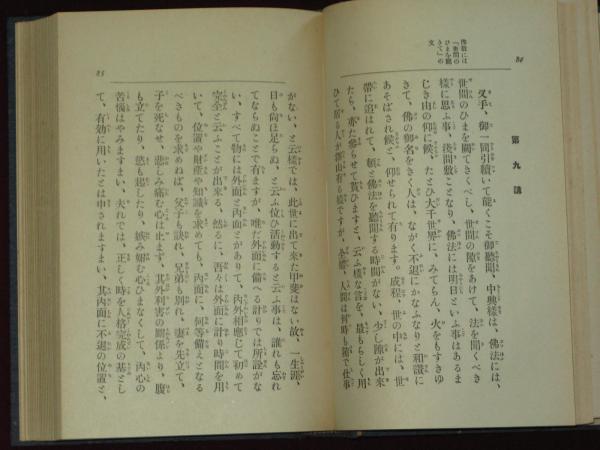 84
佛敎には
「世間の
ひまを闕
きて」の
文
第九講
又手、御一同引續いて能くこそ御聽聞、中興樣は、佛法には、
世間のひまを闕てきくべし、世間の隙をあけて、法を聞くべき
樣に思ふ事、淺間敷ことなり、佛法には明日といふ事はあるま
じき由の仰に候、たとひ大千世界に、みてらん、火をもすきゆ
きて、佛の御名をきく人は、ながく不退にかなふなりと和讃に
あそばされ候と、仰せられて有ります。成程、世の中には、世
帶に追はれて、頓と佛法を聽聞する時間がない、少し隙が出來
たら、亦た參らせて貰ひますと、云ふ樣な言を、最もらしく用
ひて居る人が澤山有る樣ですが、全體、人間は何時も隙で仕事
85
がない、と云樣では、此世に出て來た甲斐はない故、一生涯、
日も尙ほ足らぬ、と云ふ位ひ活動すると云ふ事は、誰れも忘れ
てならぬことで有ますが、唯だ外面に備へる計りでは所詮がな
い、すべて物には外面と內面とがありて、內外相應じて初めて
完全と云ふことが出來る、然るに、吾々は外面に計り時間を用
いて、位置や財產や知識を求めても、內面に、何等備えとなる
べきものを求めねば、父子も訣れ、兄弟も別れ、妻を先立て、
子を死なせ、悲しみ痛む心は止まず、其外利害の關係より、腹
も立てたり、慾も起したり、嫉み妬む心ひまなくして、內心の
苦惱はやみますまい、夫れでは、正しく時を人格完成の基とし
て、有効に用いたとは申されますまい、其內面に不退の位置と、